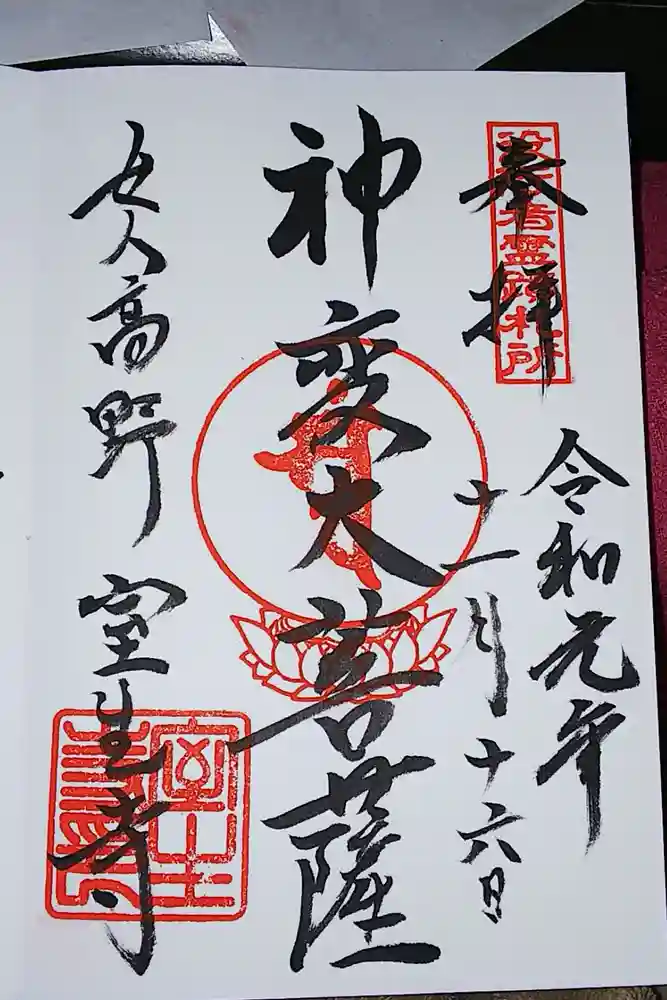 奉拝
役行者霊蹟札所
令和元年
十一月十六日
神変大菩薩
女人高野 室生寺